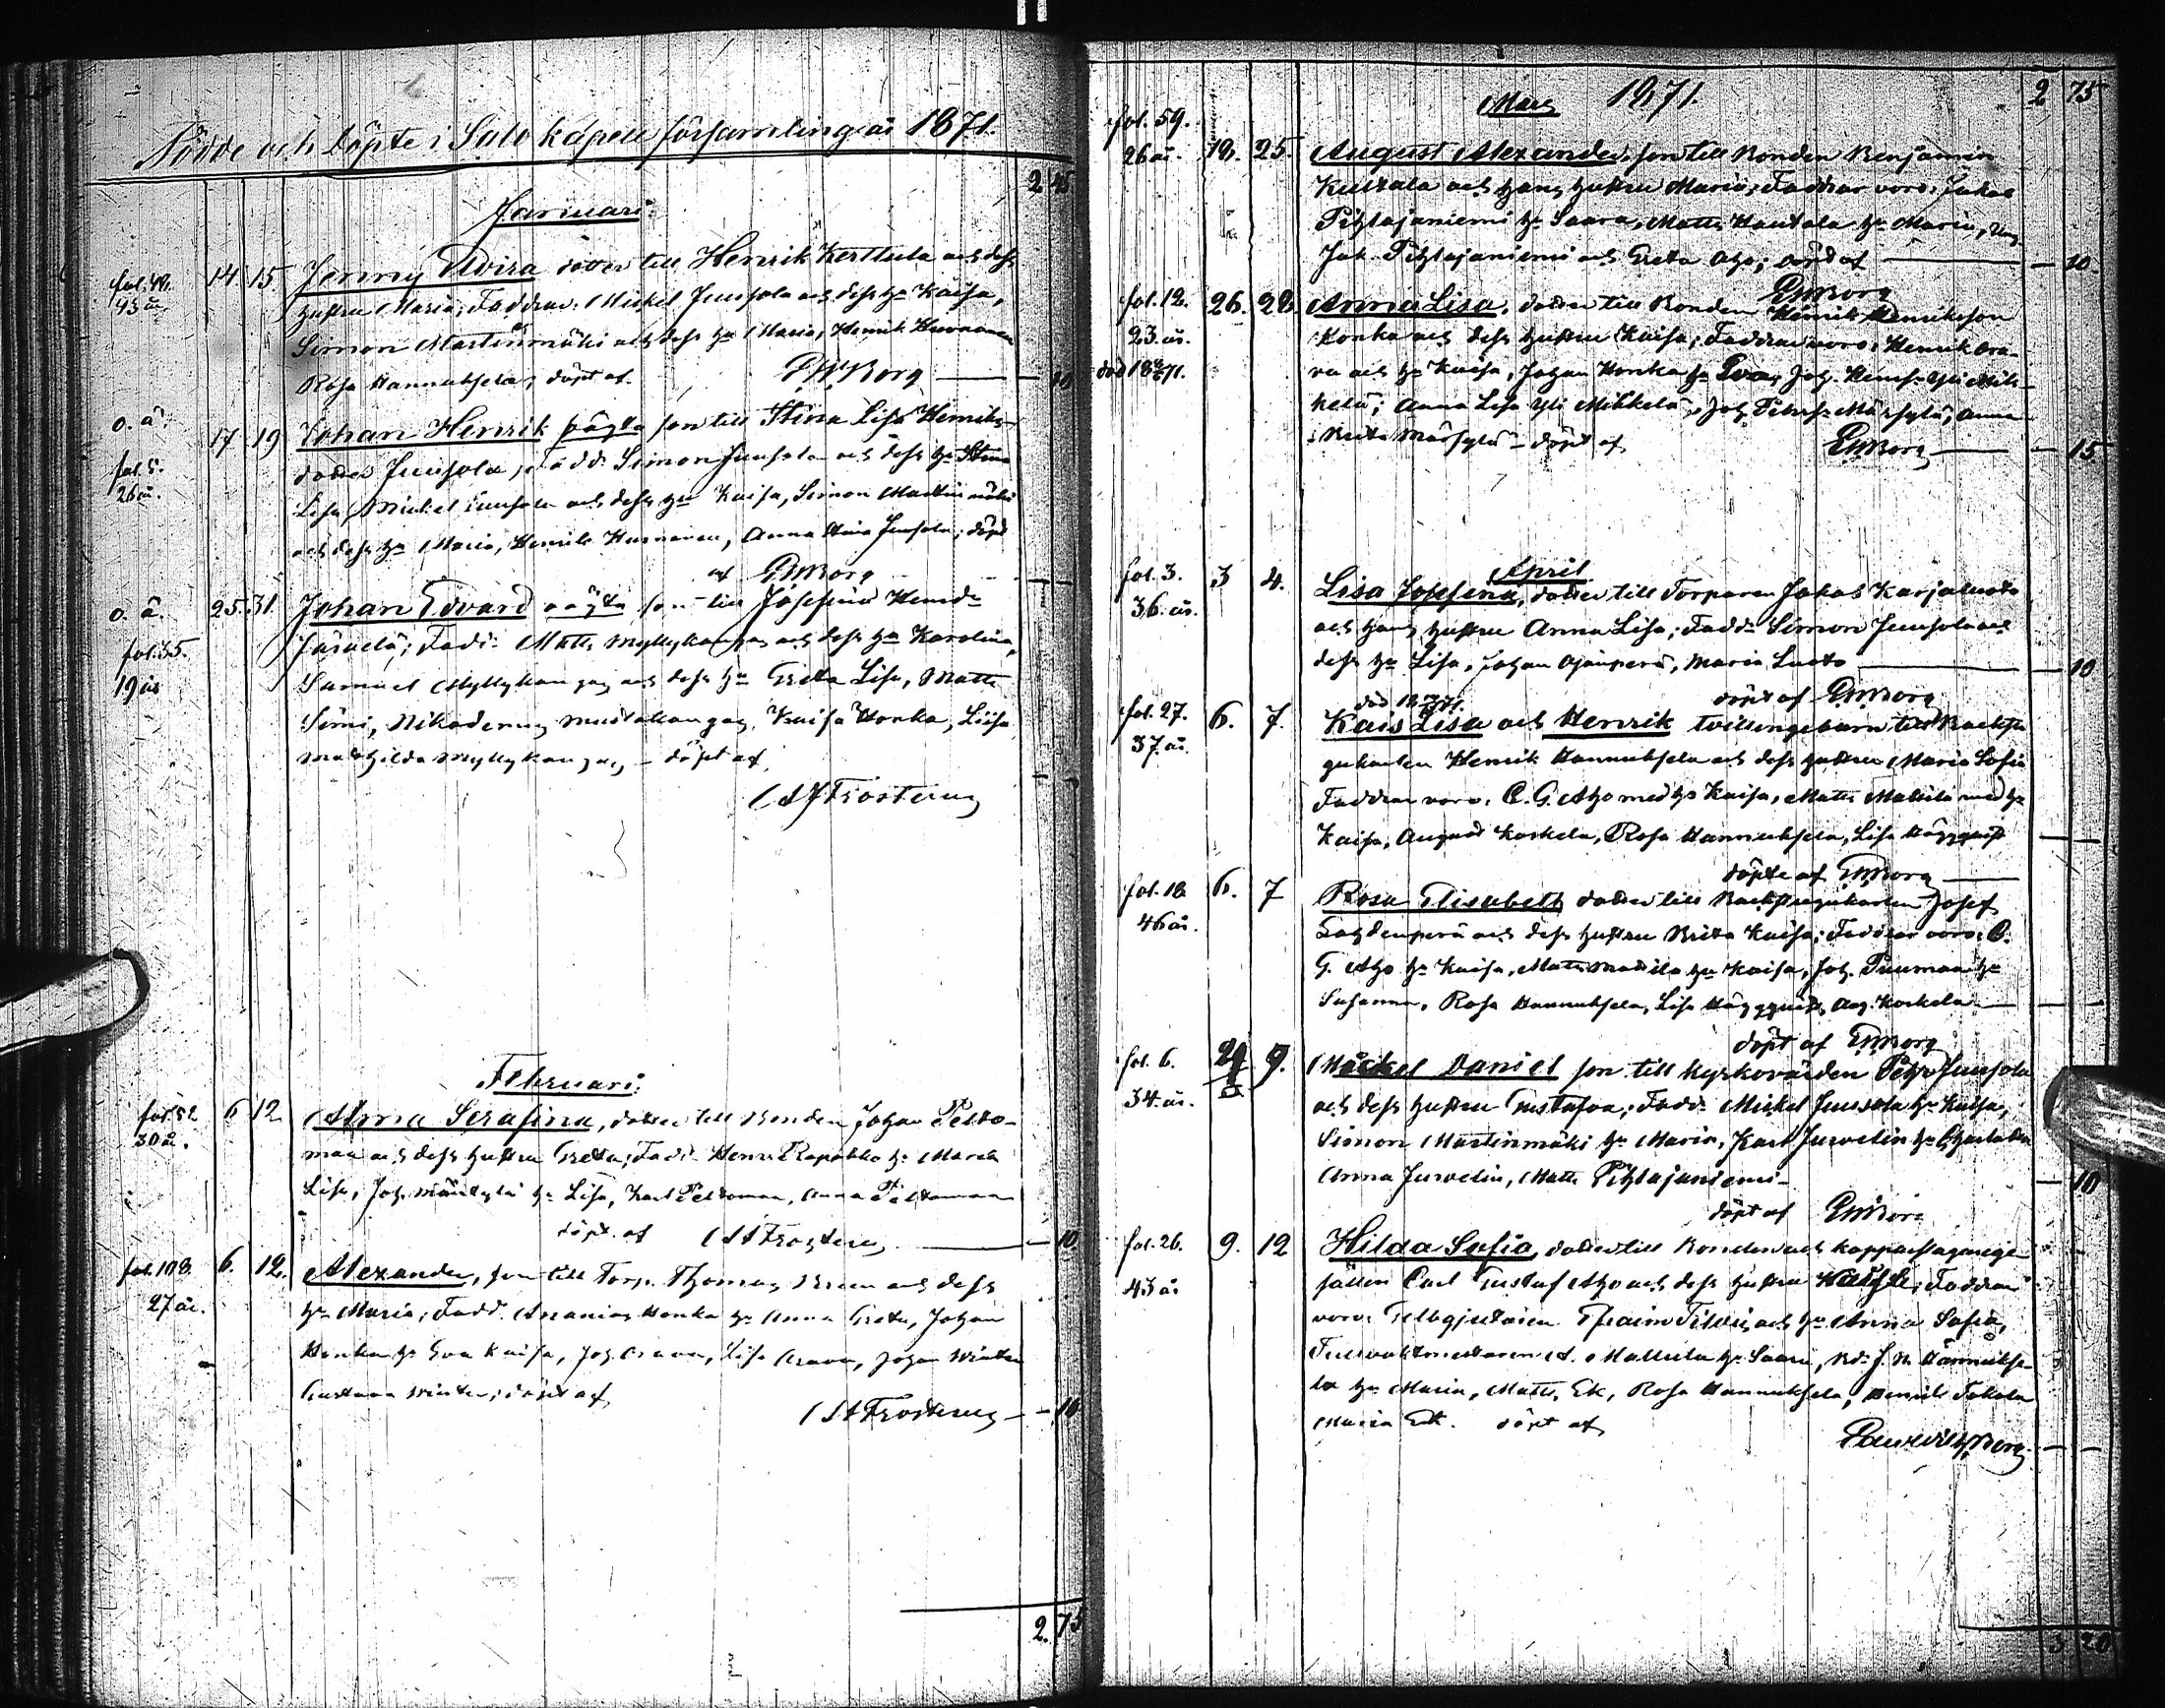 Födde och Döpte i Salo kapell församling år 1871.
2 45
Januari.
fol. 48. 43 år. 14 15 Jenny Elvira dotter till Henrik Kerttula och dess
hustru Maria; Faddrar: Mickel Junsola och dess h:u Kaisa,
Simon Martinmäki och dess h:u Maria, Henrik
Rosa Hannuksela; döpt af P W Borg — 10
o. ä. fol. 5. 26 år. 17 19 Johan Henrik oägta son till Stina Lisa Henriks-
dotter Junsola; Fadd: Simon Junsola och dess h:u Stina
Lisa, Mickel Junsola och dess h:u Kaisa, Simon Martinmäki
och dess h:u Maria, Henrik, Anna Stina Junsola; döpt
af PWBorg — —
o. ä. fol. 35. 19 år 25. 31. Johan Edvard oägta son till Josefina Henrd:r
Fadd: Matts Myllykangas och dess h:u Karolina,
Samuel Myllykangas och dess h:u Greta Lisa, Matts
Nikodemus Mustakangas, Kaisa Honka, Liisa
Mathilda Myllykangas — döpt af
A Frosterus — —
Februari.
fol. 52 30 år. 6 12 Anna Serafina, dotter till Bonden Johan Pelto-
maa och dess hustru Greta; Fadd: Henr. Rapakko h:u Maria
Lisa, Joh. Mäntylä h:u Lisa, Karl Peltomaa, Anna Peltomaa
döpt af A Frosterus — 10
fol. 108. 27 år. 6. 12. Alexander, son till Torp. Thomas och dess
h:u Maria; Fadd. Ananias Honka h:u Anna Greta, Johan
Honka h:u Eva Kaisa, Joh. Orava, Lisa Orava, Johan Winter
Gustava Winter; döpt af
A Frosterus — 10
2. 75
Mars 1871. 2 75
fol. 59. 26 år. 18. 25. August Alexander, son till Bonden Benjamin
och hans hustru Maria; Faddrar voro: Jakob
Pihlajaniemi h:u Saara, Matts Hautala h:u Maria,
Jak. Pihlajaniemi och Greta Aho; döpt af — 10.
PWBorg
fol. 12. 23. år. död 71. 26. 28 Anna Lisa, dotter till Bonden Henrik Henriksson
Honka och dess hustru Kaisa; Faddrar voro: Henrik Ora-
va och h:u Kaisa, Johan Honka h:u Eva, Joh. Henrs. Yli Mik-
kelä; Anna Lisa Yli Mikkelä, Joh. Petrs. Märsylä, Anna
Brita Märsylä — döpt af PWBorg — 15
April
fol. 3. 36. år. 3 4. Lisa Josefina, dotter till Torparen Jakob Karjaluoto
och hans hustru Anna Lisa; Fadd: Simon Junsola och
dess h:u Lisa, Johan Ojanperä, Maria Luoto — 10
döpt af PWBorg
fol. 27. 37. år. 6. 7. Kais Lisa och Henrik tvillingebarn till Backstu-
gukarlen Henrik Hannuksela och dess hustru Maria Sofia
Faddrar voro: C. G. Aho med h:u Kaisa, Matts Mattila med h:u
Kaisa, August Koskela, Rosa Hannuksela, Lisa Häggqvist — —
döpte af PWBorg
fol. 18 46 år. 6. 7 Rosa Elisabeth dotter till Backstugukarlen Josef
Lahdenperä och dess hustru Brita Kaisa; Faddrar voro: C.
G. Aho h:u Kaisa, Matts Mattila h:u Kaisa, Joh. h:u
Susanna, Rosa Hannuksela, Lisa Häggqvist, Aug. Koskela — —
döpt af PWBorg
fol. 6. 34. år. 9. Mickel Daniel son till Kyrkovärden Petter Junsola
och dess hustru Gustafva; Fadd: Mickel Junsola h:u Kaisa,
Simon Martinmäki h:u Maria, Karl Jurvelin h:u Charlotta
Anna Jurvelin, Matts Pihlajaniemi — 10
döpt af PWBorg
fol. 26. 43 år 9. 12 Hilda Sofia, dotter till Bonden och
Carl Gustaf Aho och dess hustru Kaisa; Faddrar
voro: Gelbgjutaren och h:u Anna Sofia,
A. Mattila h:u Saara, Hannukse-
la h:u Maria, Matts Ek, Rosa Hannuksela, Henrik
Maria Ek. döpt af
Borg — —
3 20